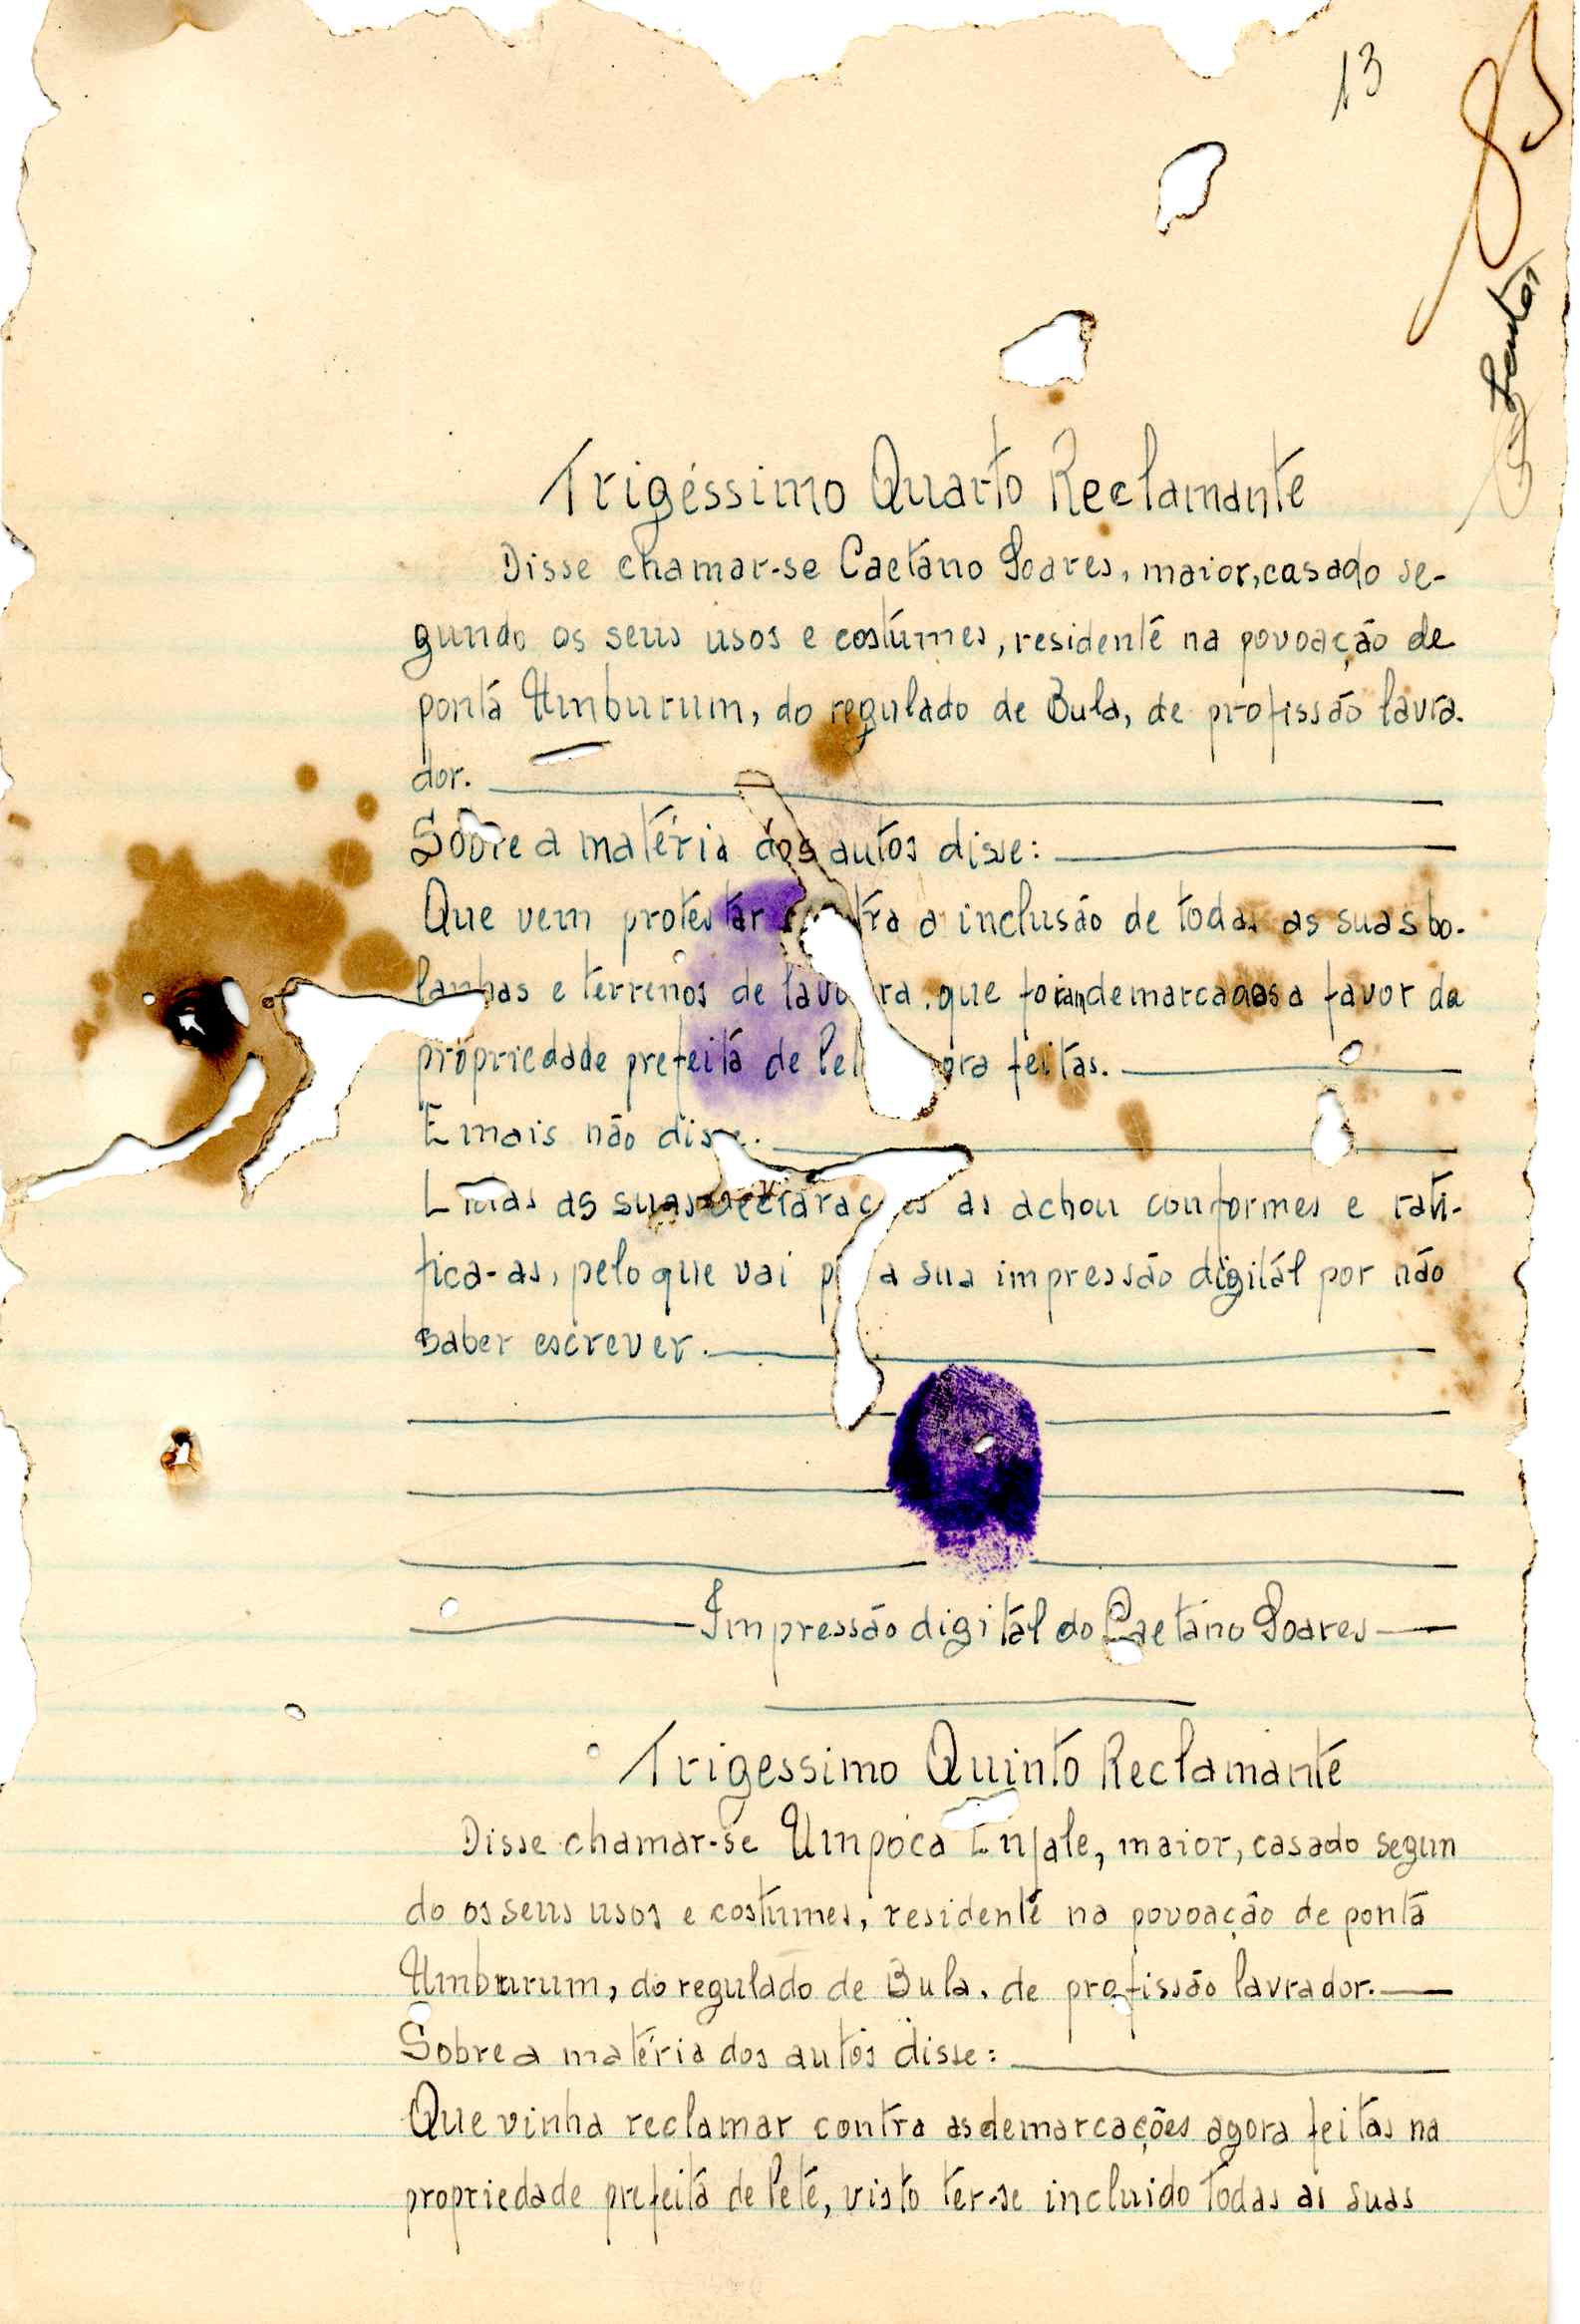 13
85
Trigéssimo Quarto Reclamante
Disse chamar-se Caetano Soares, maior, casado se-
gundo os seus usos e costumes, residente na povoação de
ponta Umburum, do regulado de Bula, de profissão lavra-
dor.
Sobre a matéria dos autos disse:
Que vem protestar contra a inclusão de todas as suas bo-
lanhas e terrenos de lavoura, que foram demarcadas a favor da
propriedade prefeita de Pel ora feitas.
E mais não disse.
Lidas as suas declarações as achou conformes e rati-
fica-as, pelo que vai p a sua impressão digitál por não
saber escrever.
Impressão digitál do Caetano Soares
Trigessimo Quinto Reclamante
Disse chamar-se Umpoca Enjale, maior, casado segun
do os seus usos e costumes, residente na povoação de ponta
Umburum, do regulado de Bula, de profissão lavrador.
Sobre a matéria dos autos disse:
Que vinha reclamar contra as demarcações agora feitas na
propriedade prefeita de Peté, visto ter-se incluido todas as suas